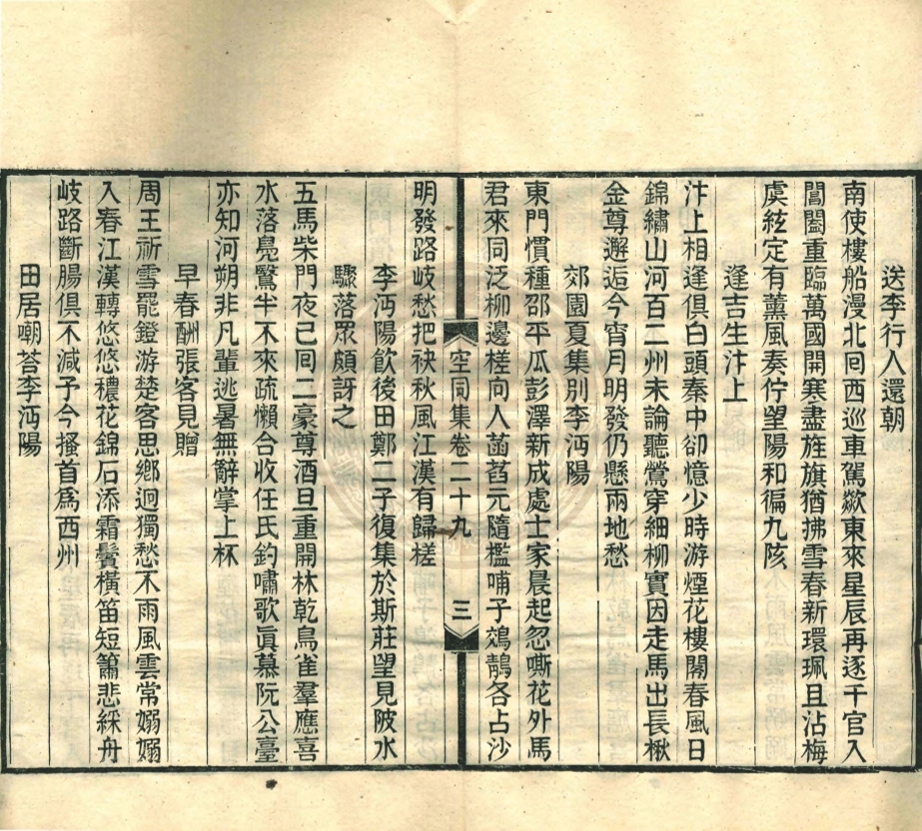 送李行人還朝
南使樓船漫北囘西巡車駕歘東來星辰再逐千官入
閶闔重臨萬國開寒盡旌旗猶拂雪春新環珮且沾梅
虞絃定有薰風奏佇望陽和徧九陔
逢吉生汴上
汴上相逢俱白頭秦中卻憶少時游煙花樓閣春風日
錦繡山河百二州未論聽鶯穿細柳實因走馬出長楸
金尊邂逅今宵月明發仍懸兩地愁
郊園夏集別李沔陽
東門慣種邵平瓜彭澤新成處士家晨起忽嘶花外馬
君來同泛柳邊槎向人菡萏元隨檻哺子鵁鶄各占沙
空同集卷二十九 三
明發路岐愁把袂秋風江漢有歸槎
李沔陽飲後田鄭二子復集於斯莊望見陂水
驟落眾頗訝之
五馬柴門夜已囘二豪尊酒旦重開林乾鳥雀羣應喜
水落鳧鷖半不來疏懶合收任氏釣嘯歌眞慕阮公臺
亦知河朔非凡輩逃暑無辭掌上杯
早春酬張客見贈
周王祈雪罷鐙游楚客思鄉迥獨愁不雨風雲常嫋嫋
入春江漢轉悠悠穠花錦石添霜鬢橫笛短簫悲綵舟
岐路斷腸俱不減予今搔首爲西州
田居嘲荅李沔陽